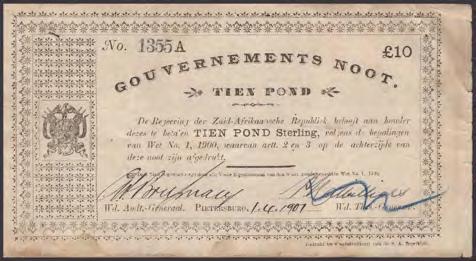 No. 1355 A
£10
GOUVERNEMENTS NOOT.
TIEN POND
De Regeering der Zuid-Afrikaansche Republiek belooft aan houder
dezes te betalen TIEN POND Sterling, volgens de bepalingen
van Wet No. 1, 1900, waarvan artt. 2 en 3 op de achterzijde van
deze noot zijn afgedrukt.
Wd. Audt.-Generaal. PIETERSBURG, 1.4.1901 Wd. Thes.-Generaal.